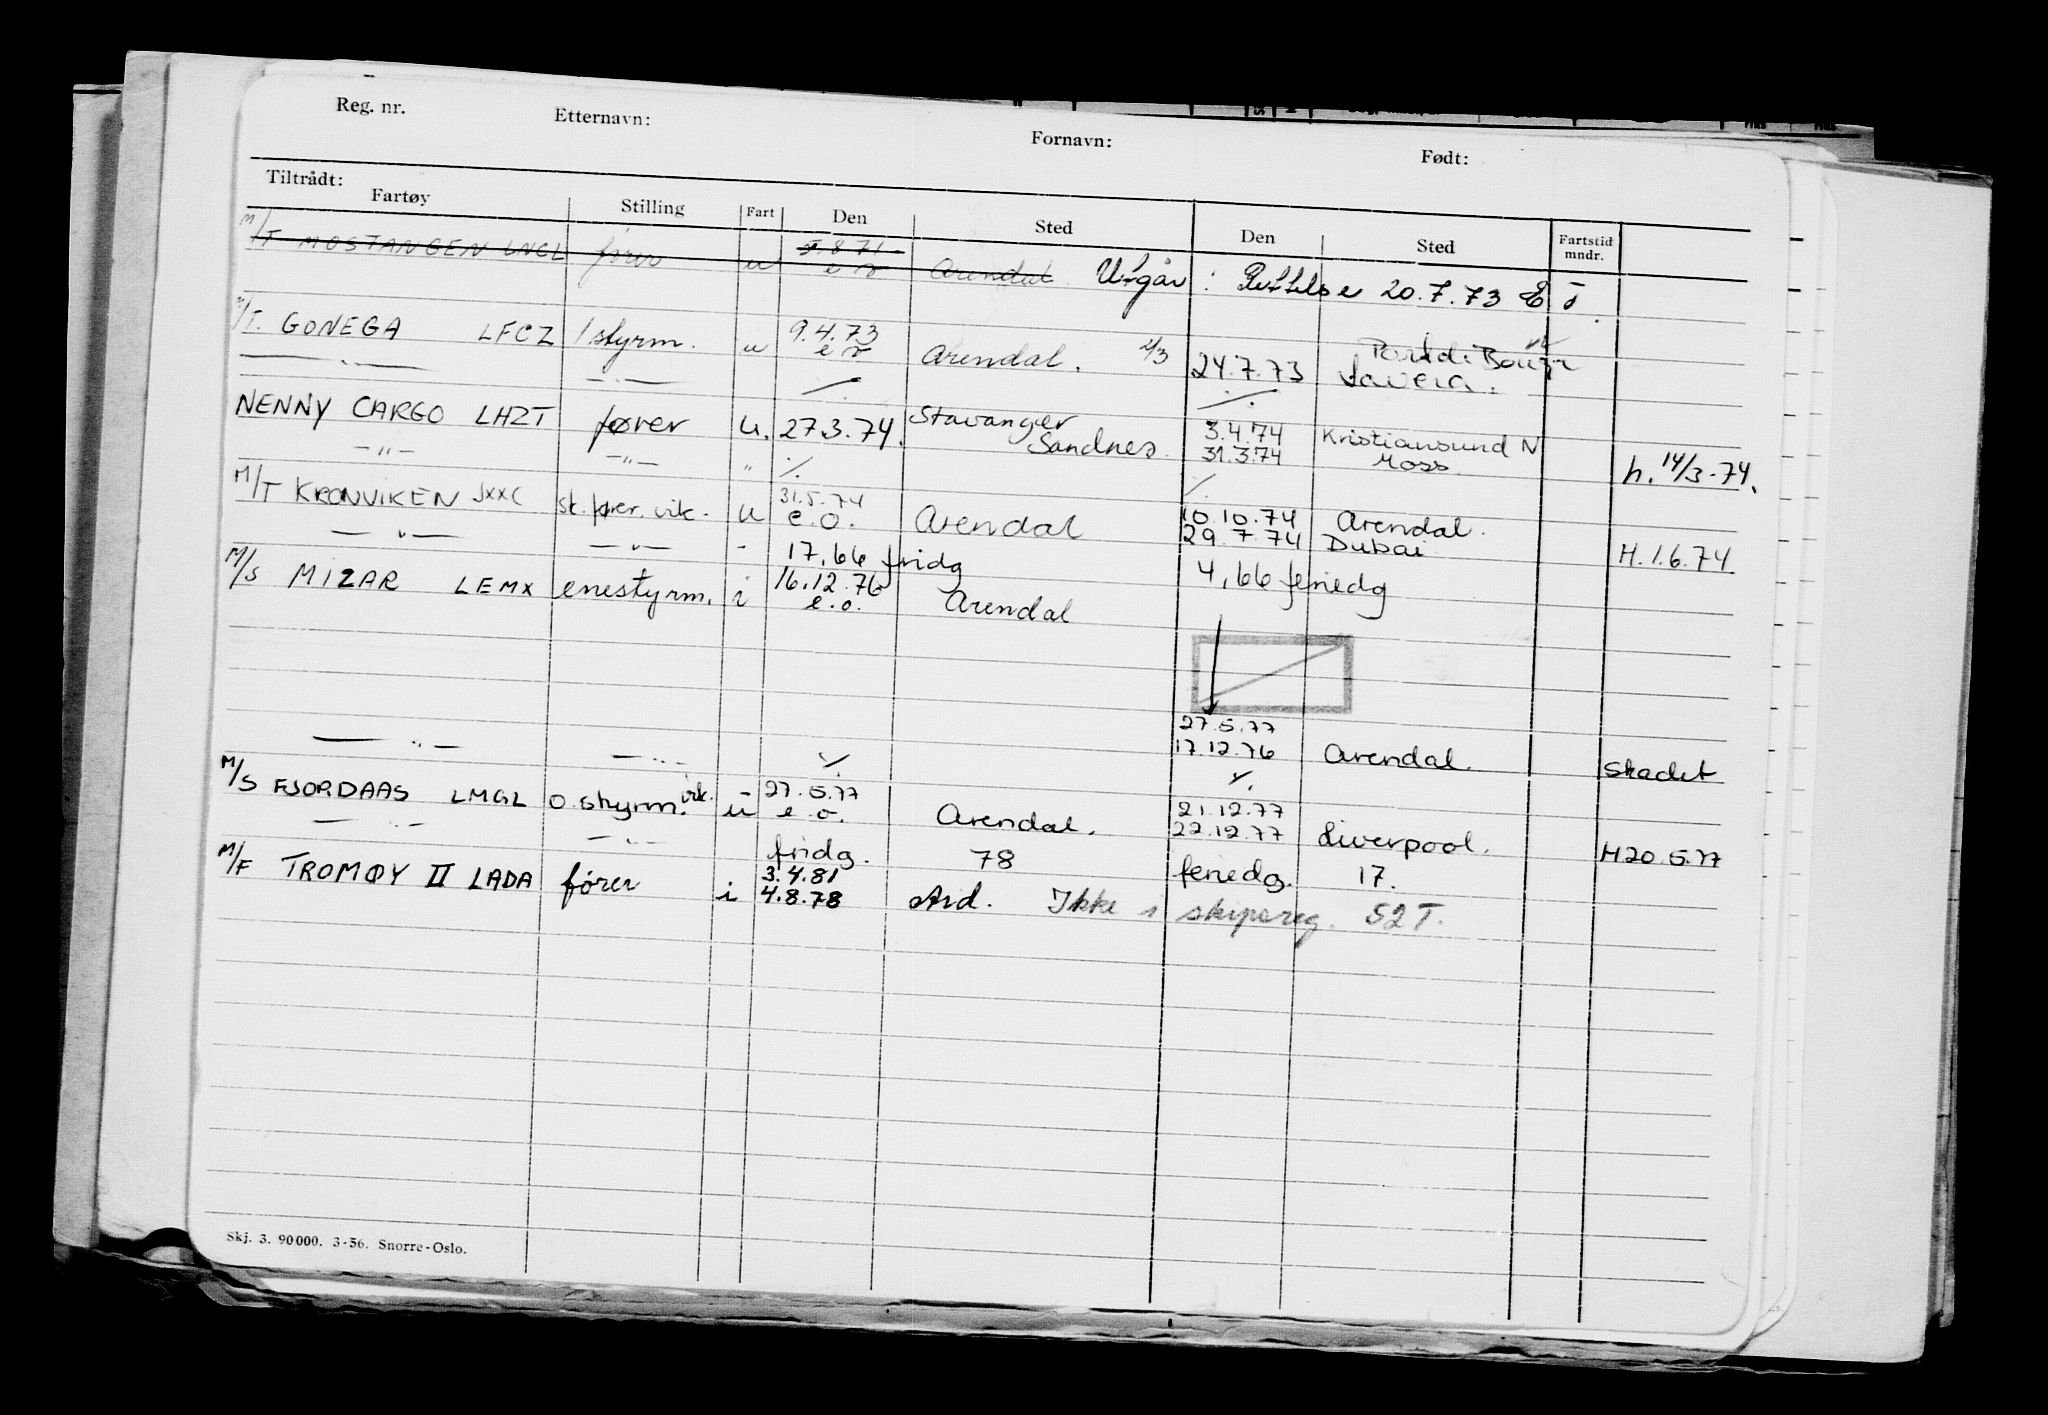 Reg. nr. Etternavn: Fornavn: Født:
Tiltrådt:
Fartøy Stilling Fart Den Sted Den Sted Fartstid mndr.
M/T MOSTANGEN LNCL fører u 5.8.71 e o Arendal Utgår: Rettelse 20.7.73
M/T. GONEGA LFCZ 1 styrm. u 9.4.73 e o Arendal. 2/3 24.7.73 Lavera.
—"— —"— ./.  ./.
NENNY CARGO LHZT fører u. 27.3.74. Stavanger 3.4.74 Kristiansund N
Sandnes 31.3.74 Moss h. 14/3-74.
—"— —"— " ./. ./.
M/T KRONVIKEN JXXC st. fører. vik. u 31.5.74 e.o. Arendal 10.10.74 Arendal.
—"— —"— - 29.7.74 Dubai H. 1.6.74
17,66 fridg 4,66 feriedg
M/S MIZAR LEMX enestyrm. i 16.12.76 e.o. Arendal
27.5.77
—"— —"— ./. 17.12.76 Arendal. Skadet
./.
M/S FJORDAAS LMGL o. styrm. vik. u 27.5.77 e.o. Arendal. 21.12.77
—"— —"— 22.12.77 Liverpool. H 20.5.77
fridg. 78 feriedg. 17.
M/F TROMØY II LADA fører i 3.4.81
4.8.78 Ard. Ikke i skipsreg. 52 T.
Skj. 3. 90000. 3-56. Snorre-Oslo.